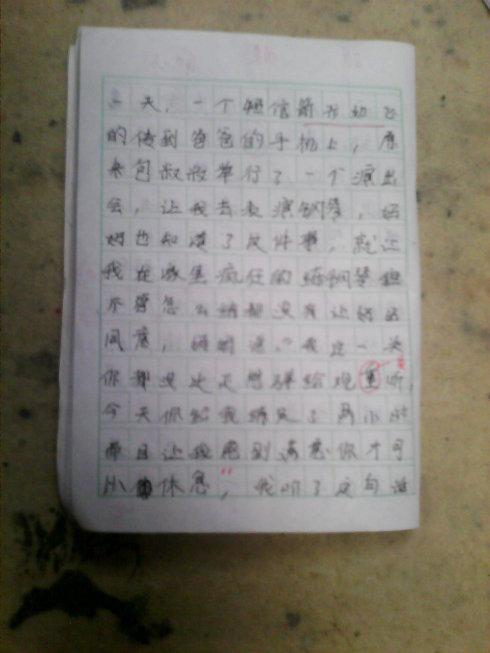 一天，一个短信箭飞
的传到爸爸的手机上，原
来包叔叔举行了一个演出
会，让我去表演钢琴，妈
妈也知道了这件事，就让
我在家里疯狂的练钢琴但
不管怎么练都没有让妈妈
同意，妈妈说："我这一关
你都没过还想弹给观听，
今天你给我练足了两小时
而且让我感到满意你才可
以休息"，我听了这句话